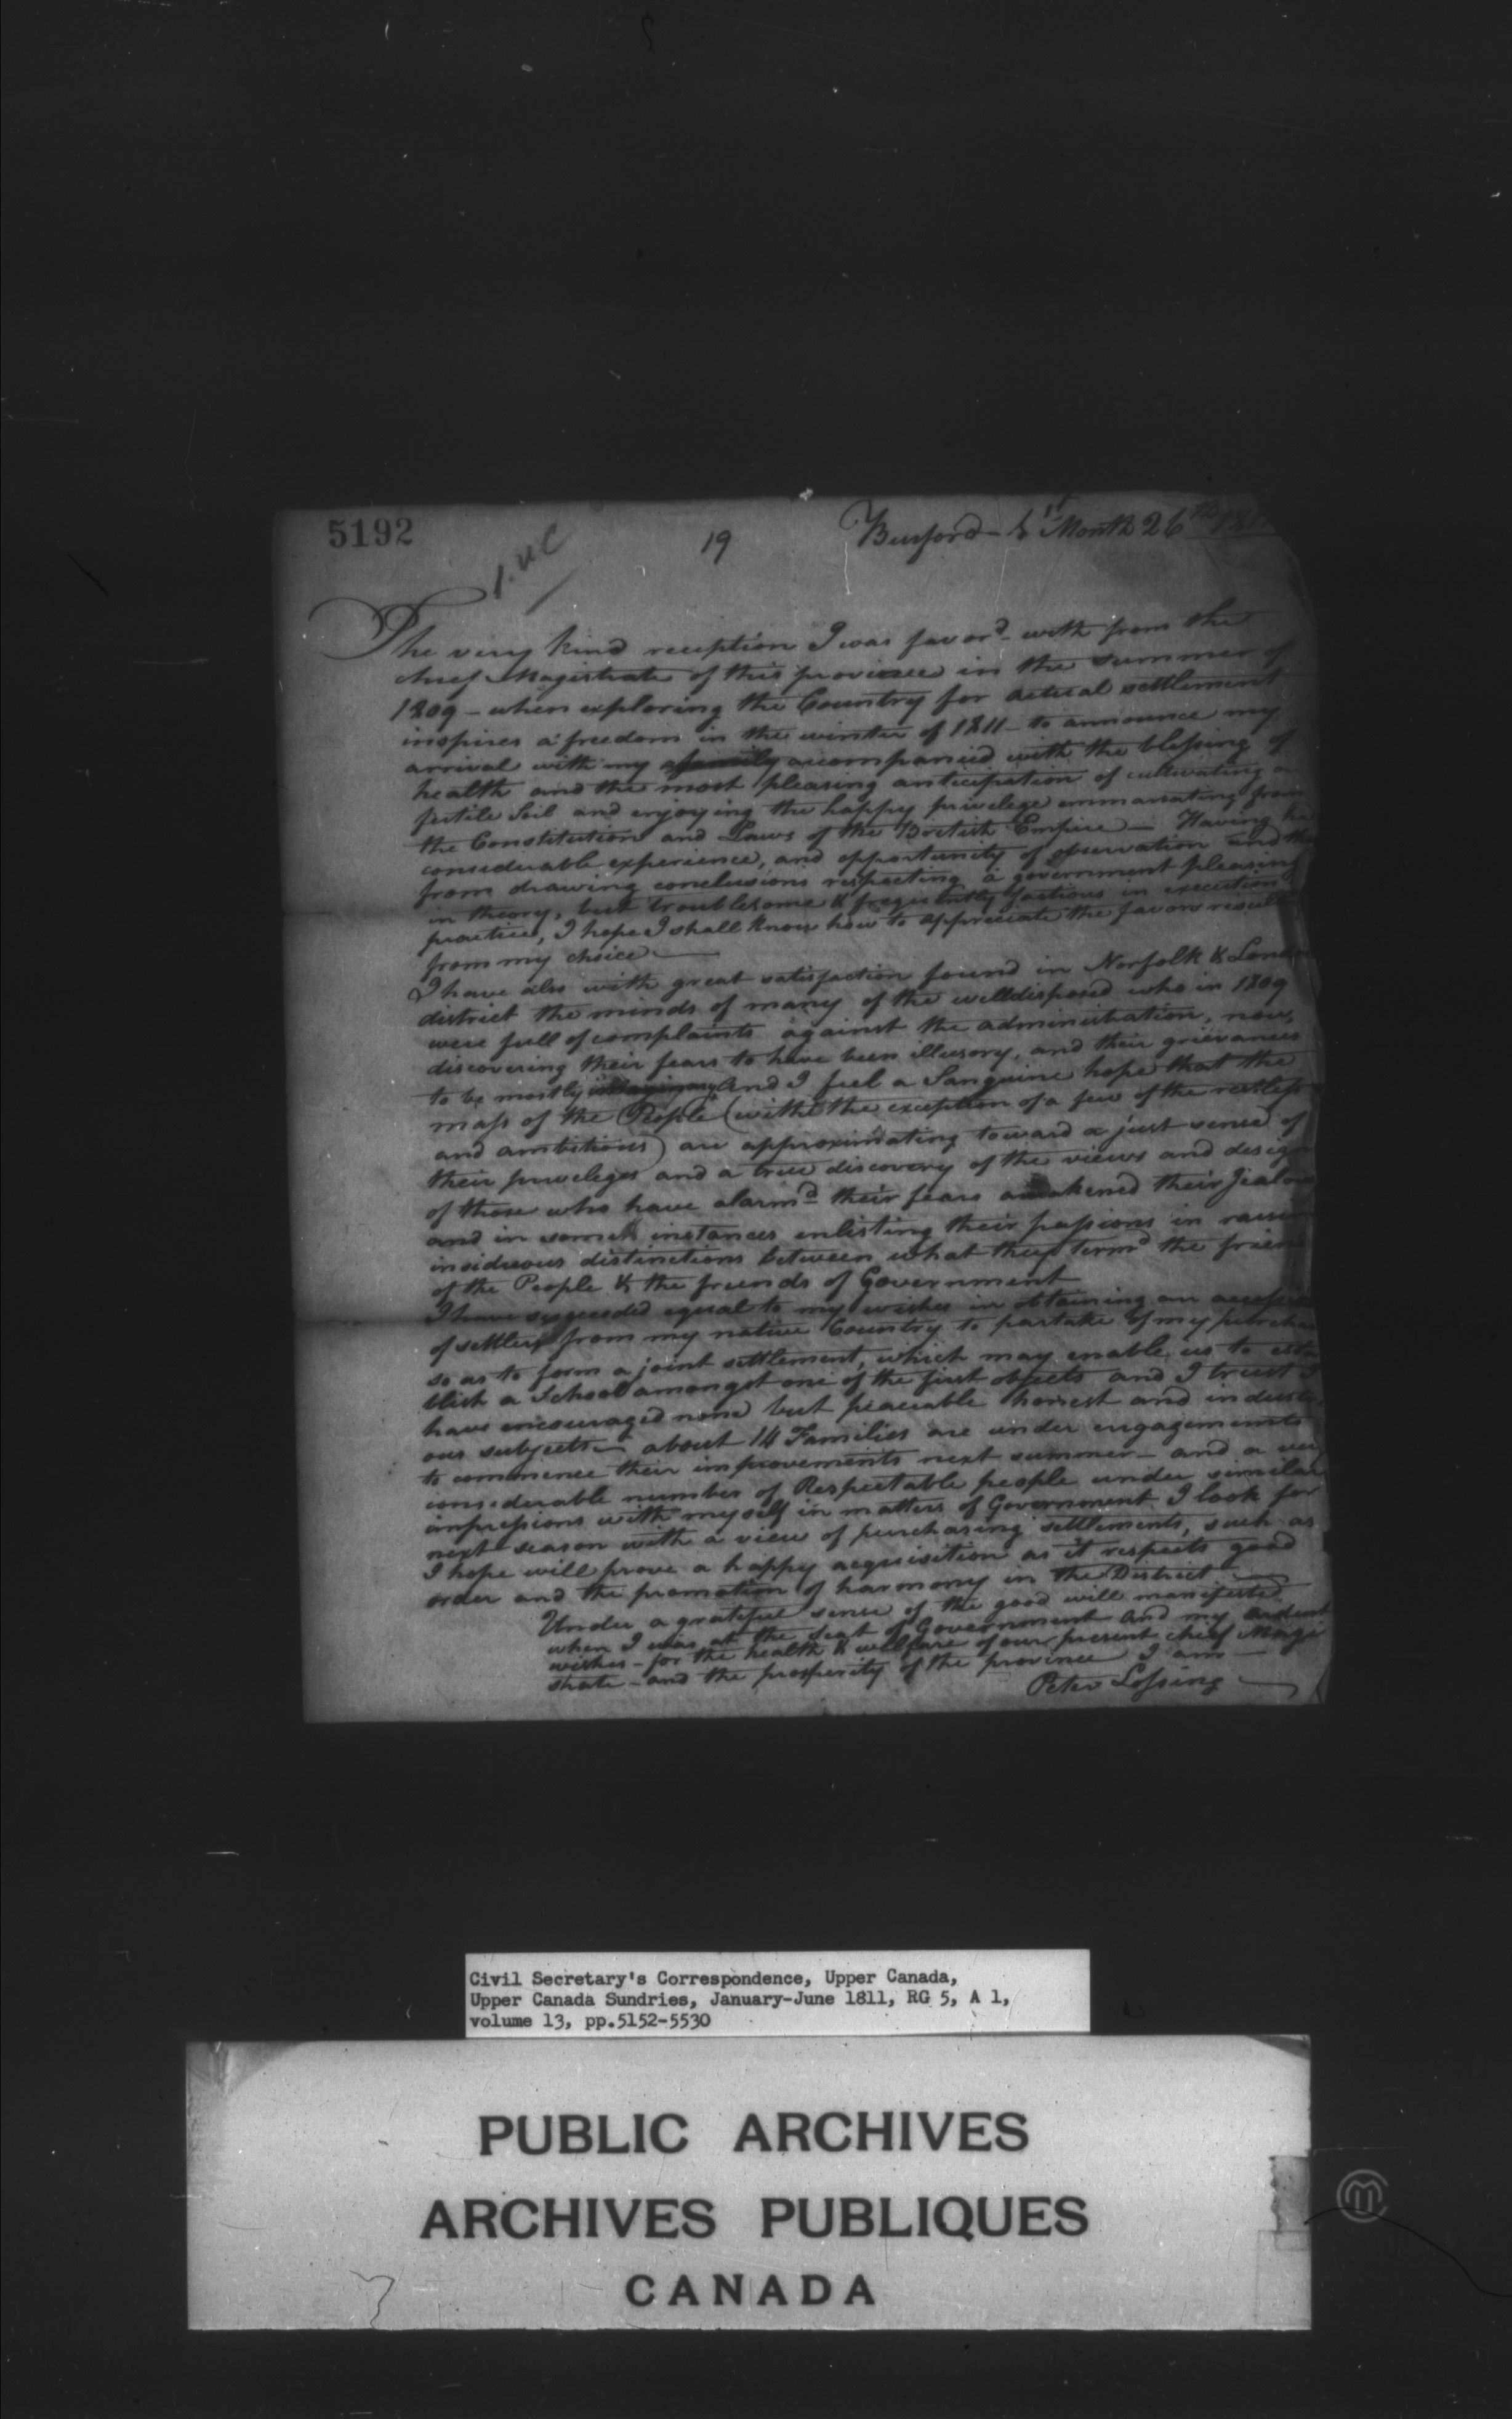 5192
19
1. U C
Burford - 1st Month 26th 1811
The very kind reception I was favord with from the
chief Magistrate of this province in the summer of
1809 - when exploring the Country for actual settlement
inspires a freedom in the winter of 1811 - to announce my
arrival with my family accompanied with the blessing of
health and the most pleasing anticipation of cultivating a
fertile Soil and enjoying the happy privelege emmanating from
the Constitution and Laws of the British Empire - Having had
considerable experience, and opportunity of observation and
from drawing conclusions respecting a government pleasing
in theory, but troublesome & frequently factious in execution
practice, I hope I shall know how to appreciate the favors
from my choice
I have also with great satisfaction found in Norfolk &
district the minds of many of the welldisposed who in 1809
were full of complaints against the administration, now,
discovering their fears to have been illusory, and their grievances
to be mostly imaginary And I feel a Sanguine hope that the
mass of the People (with the exception of a few of the restless
and ambitious) are approximating toward a just sense of
their priveleges and a true discovery of the views and
of those who have alarmd their fears awakened their
and in some instances enlisting their passions in
insidieous distinctions between what they termd the
of the People & the friends of Government
I have succeeded equal to my wishes in obtaining an
of settlers from my native Country to partake of my
so as to form a joint settlement, which may enable us to esta
blish a School amongst one of the first objects and I trust I
have encouraged none but peaceable honest and industri
ous subjects - about 14 Families are under engagements
to commence their improvements next summer - and a very
considerable number of Respectable people under similar
impressions with myself in matters of Government I look for
next season with a view of purchasing settlements, such as
I hope will prove a happy acquisition as it respects good
order and the promotion of harmony in the District
Under a grateful sense of the good will manifested
when I was at the Seat of Government and my ardent
wishes - for the health & wellfare of our present chief Magi
strate - and the prosperity of the province I am -
Peter Lossing
Civil Secretary's Correspondence, Upper Canada,
Upper Canada Sundries, January-June 1811, RG 5, A 1,
volume 13, pp.5152-5530
PUBLIC ARCHIVES
ARCHIVES PUBLIQUES
CANADA